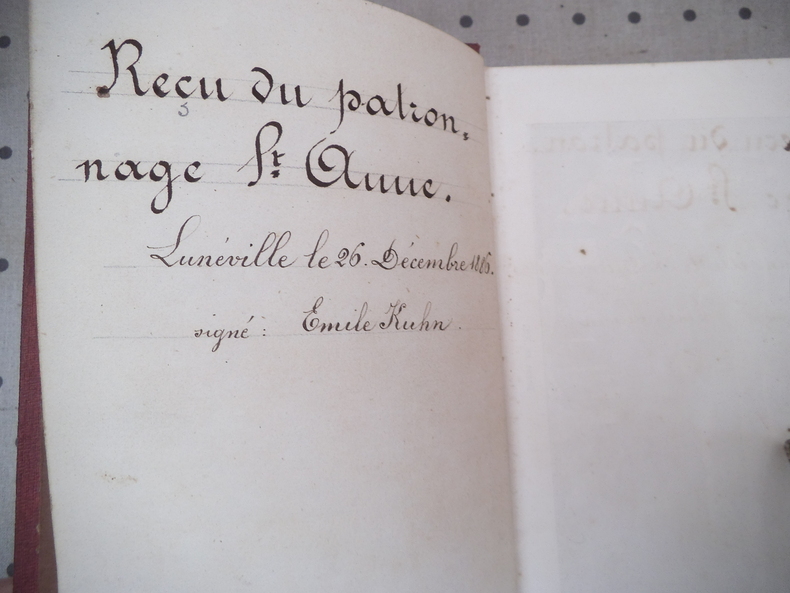 Reçu du patron-
nage St. Anne.
Lunéville le 26. Décembre
signé: Emile Kuhn.